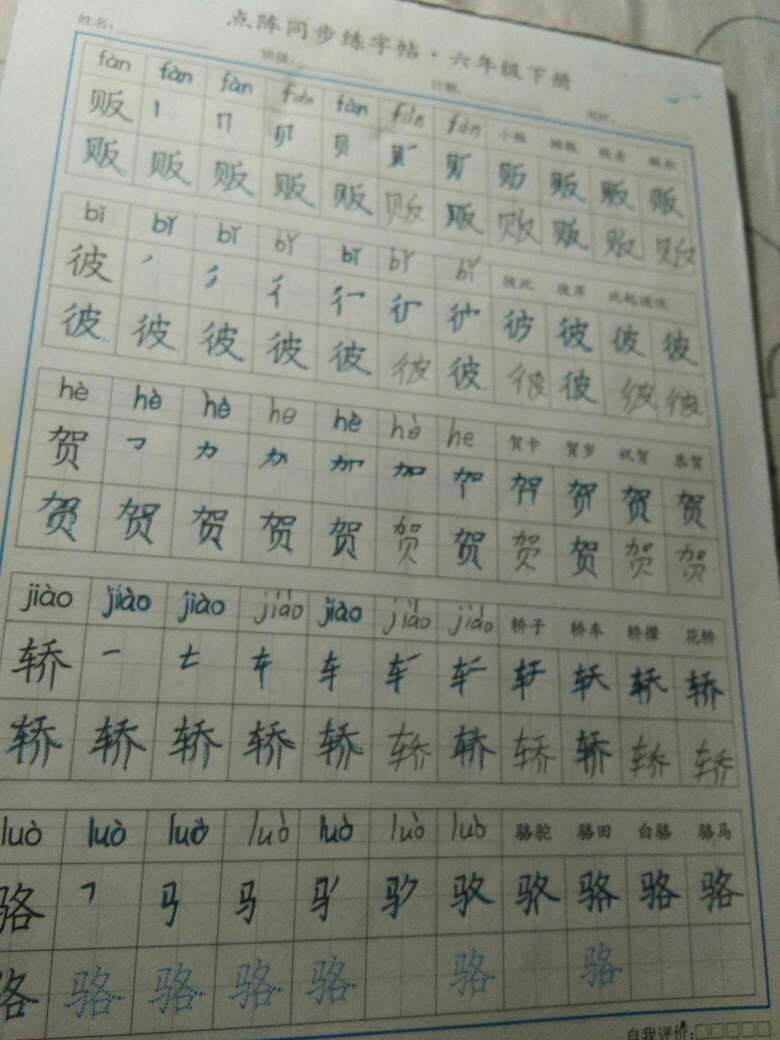 点阵同步练字帖·六年级下册
姓名: 班级:
fàn fàn fàn fàn fàn fàn fàn 小贩
贩 丨 冂 贝 贩 贩 贩
贩 贩 贩 贩 贩 贩 贩 贩 贩 贩 贩
bǐ bǐ bǐ bǐ bǐ bǐ bǐ 彼此 彼岸 此起彼伏
彼 丿 彳 彼 彼 彼
彼 彼 彼 彼 彼 彼 彼 彼 彼 彼 彼
hè hè hè he hè hè he 贺卡 贺岁 祝贺 恭贺
贺 力 加 贺 贺
贺 贺 贺 贺 贺 贺 贺 贺 贺 贺 贺
jiào jiào jiào jiào jiào jiào jiào 轿子 轿车 轿攆 花轿
轿 一 车 车 轿
轿 轿 轿 轿 轿 轿 轿 轿 轿 轿 轿
luò luò luò luò luò luò luò 骆驼 骆田 白骆 骆马
骆 马 马 驭 骆 骆 骆
骆 骆 骆 骆 骆 骆 骆
自我评价:□□□□□